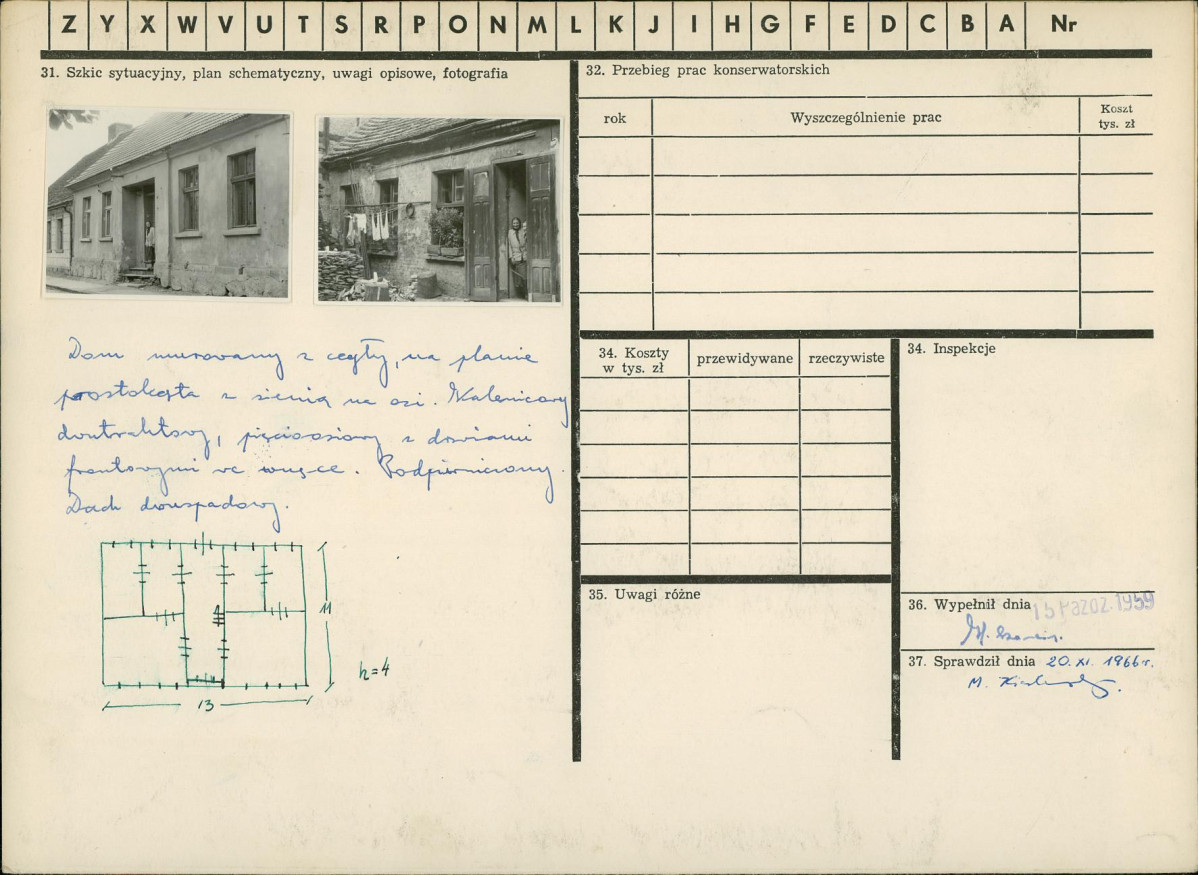 Z Y X W V U T S R P O N M L K J I H G F E D C B A Nr
31. Szkic sytuacyjny, plan schematyczny, uwagi opisowe, fotografia
Dom murowany z cegły, na planie
prostokąta z sienią na osi. Kalenicowy
dwutraktowy, pięcioosiowy z drzwiami
frontowymi we wnęce. Podpiwniczony.
Dach dwuspadowy.
11
h=4
13
32. Przebieg prac konserwatorskich
rok
Wyszczególnienie prac
Koszt
tys. zł
34. Koszty
w tys. zł
przewidywane
rzeczywiste
34. Inspekcje
35. Uwagi różne
36. Wypełnił dnia 15 PAŹDZ. 1959
37. Sprawdził dnia 20. XI. 1966 r.
M.